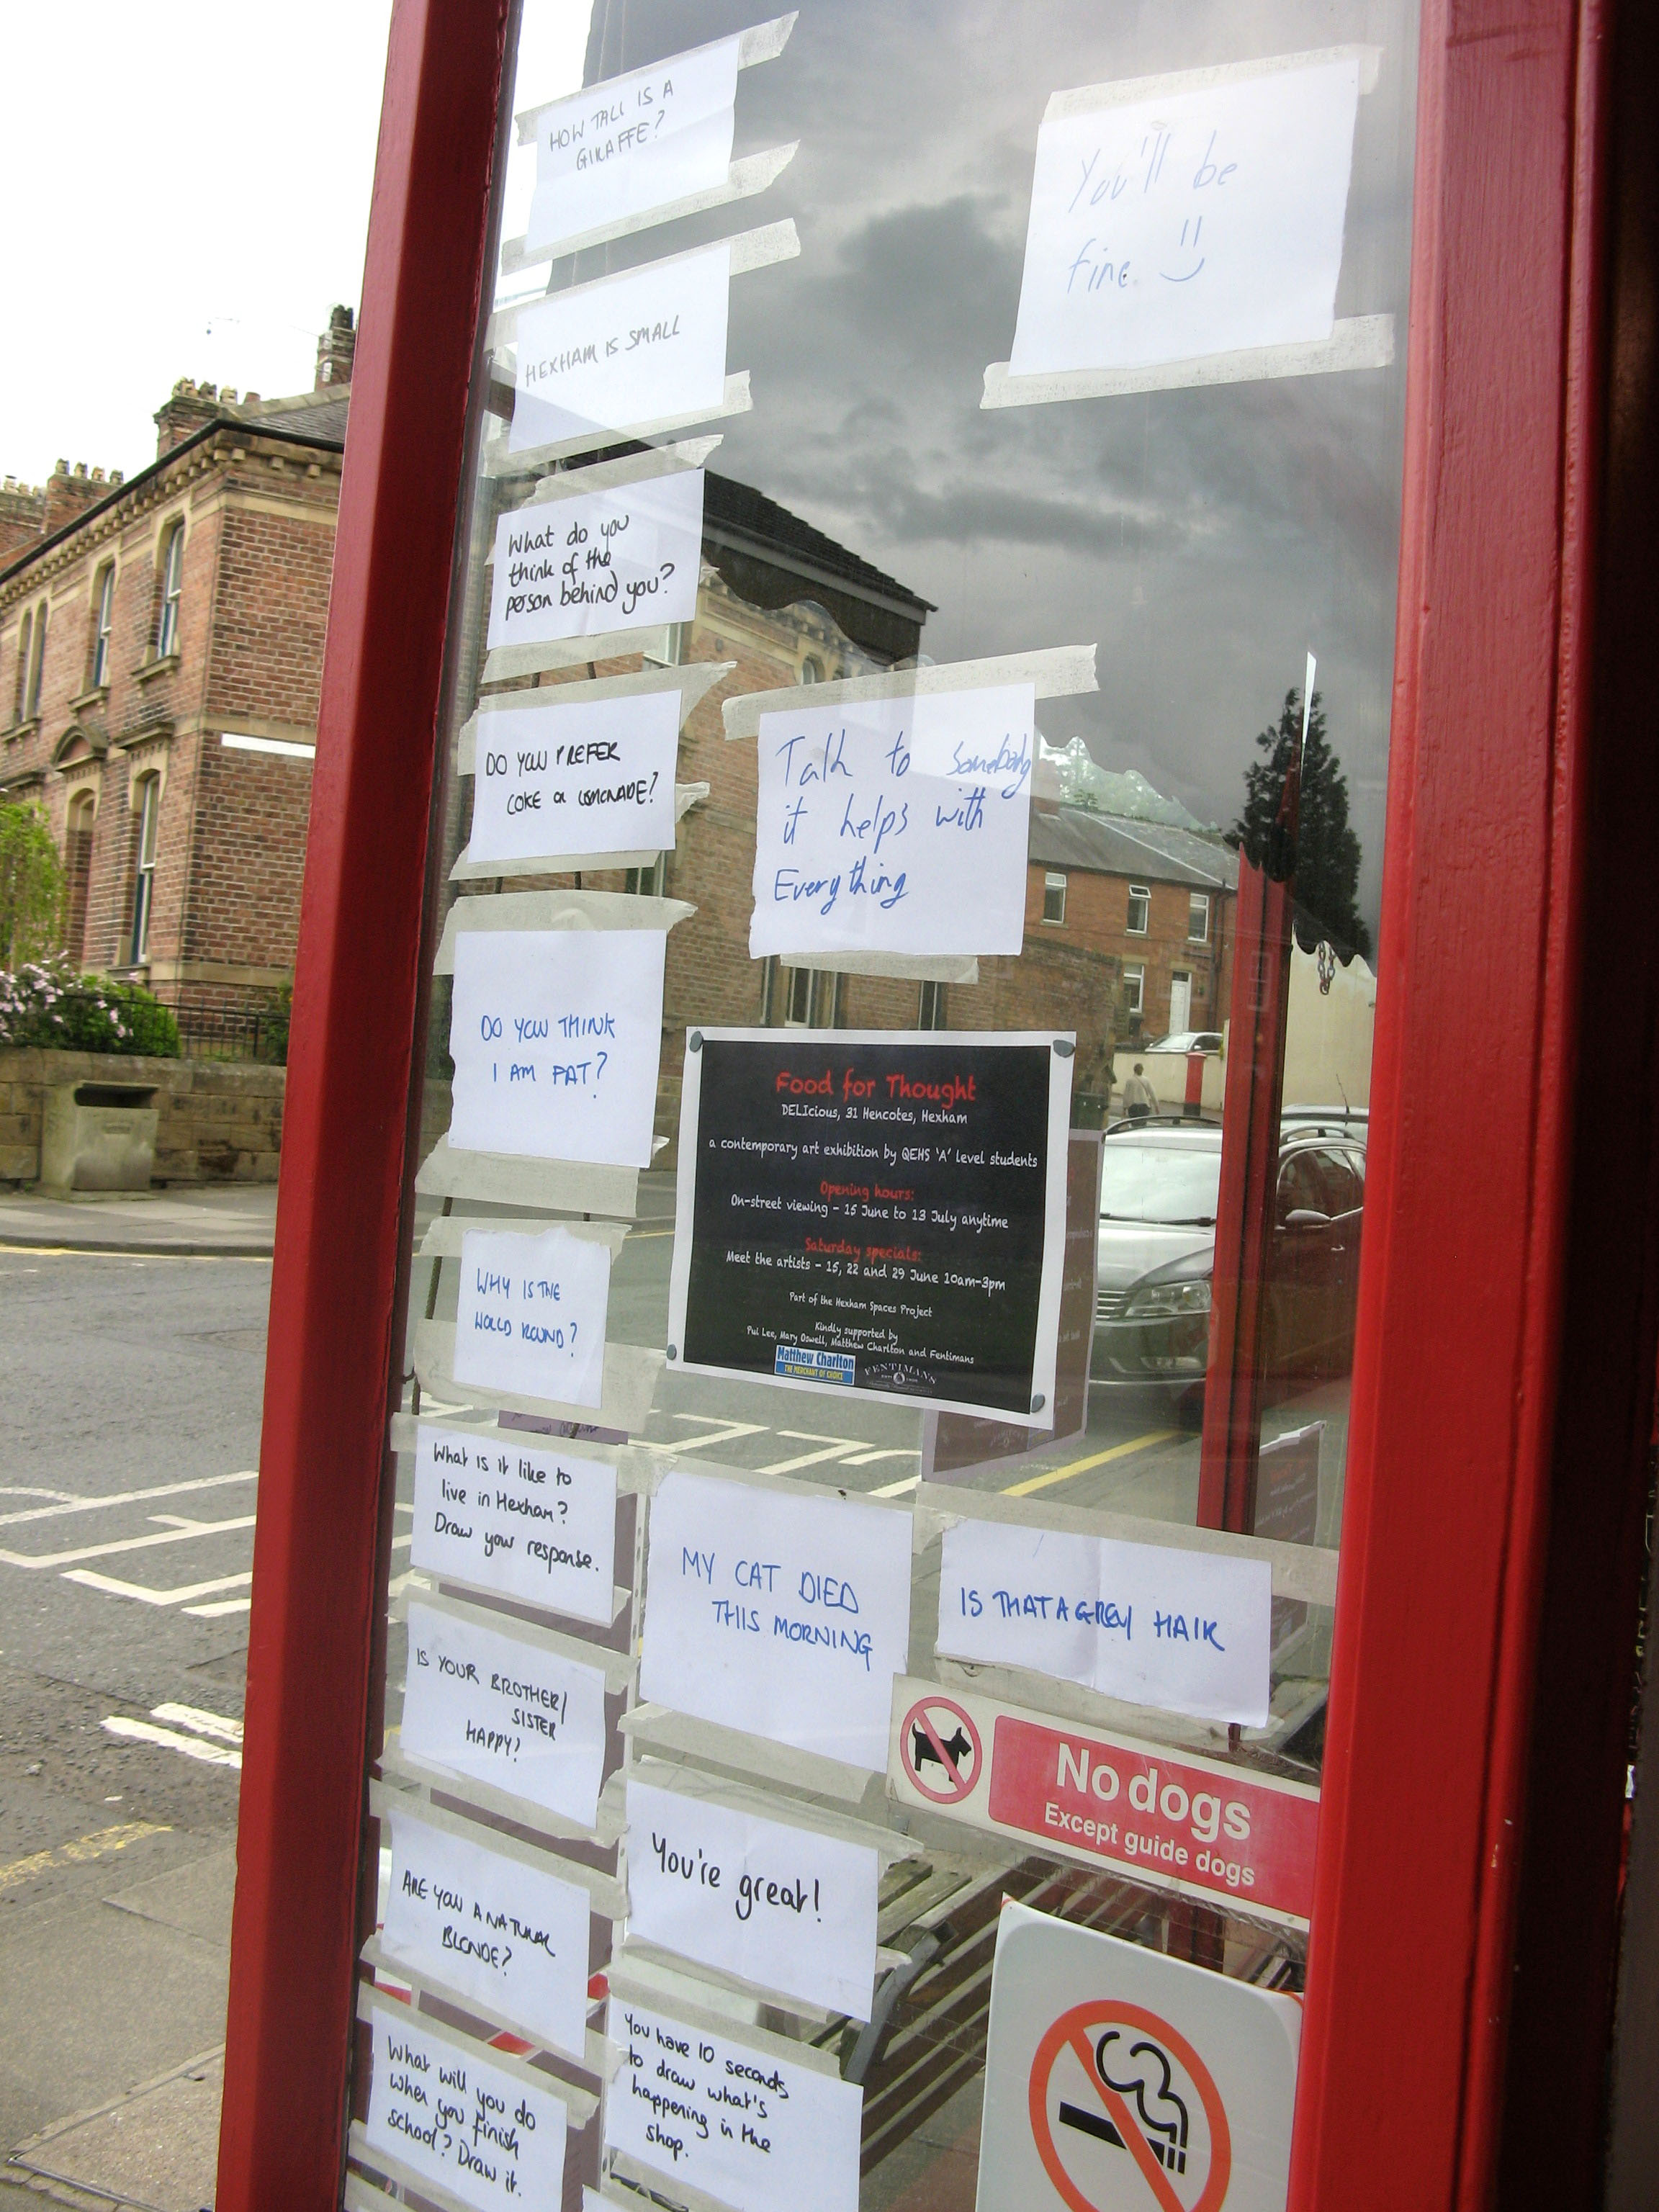 HOW TALL IS A
GIRAFFE?
You'll be
fine.
HEXHAM IS SMALL
What do you
think of the
person behind you?
DO YOU PREFER
COKE or LEMONADE?
Talk to somebody
it helps with
Everything
DO YOU THINK
I AM FAT?
Food for Thought
DELIcious, 31 Hencotes, Hexham
a contemporary art exhibition by QEHS 'A' level students
Opening hours:
On-street viewing - 15 June to 13 July anytime
Saturday specials:
Meet the artists - 15, 22 and 29 June 10am-3pm
Part of the Hexham Spaces Project
Kindly supported by
Pui Lee, Mary Oswell, Matthew Charlton and Fentimans
Matthew Charlton
THE MERCHANT OF CHOICE
FENTIMANS
WHY IS THE
WORLD ROUND?
What is it like to
live in Hexham?
Draw your response.
MY CAT DIED
THIS MORNING
IS THAT A GREY HAIR
IS YOUR BROTHER/
SISTER
HAPPY?
No dogs
Except guide dogs
You're great!
ARE YOU A NATURAL
BLONDE?
You have 10 seconds
to draw what's
happening in the
shop.
What will you do
when you finish
school? Draw it.